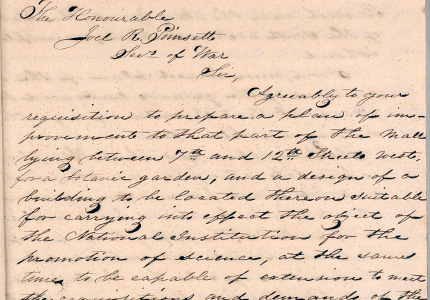 The Honourable
Joel R. Poinsett
Secy of War
Sir,
Agreeably to your
requisition to prepare a plan of im-
provements to that part of the Mall
lying between 7th and 12th Streets west,
for a botanic garden, and a design of a
building to be located thereon suitable
for carrying into effect the object of
the National Institution for the
promotion of science, at the same
time to be capable of extension to meet
the acquisitions and demands of the